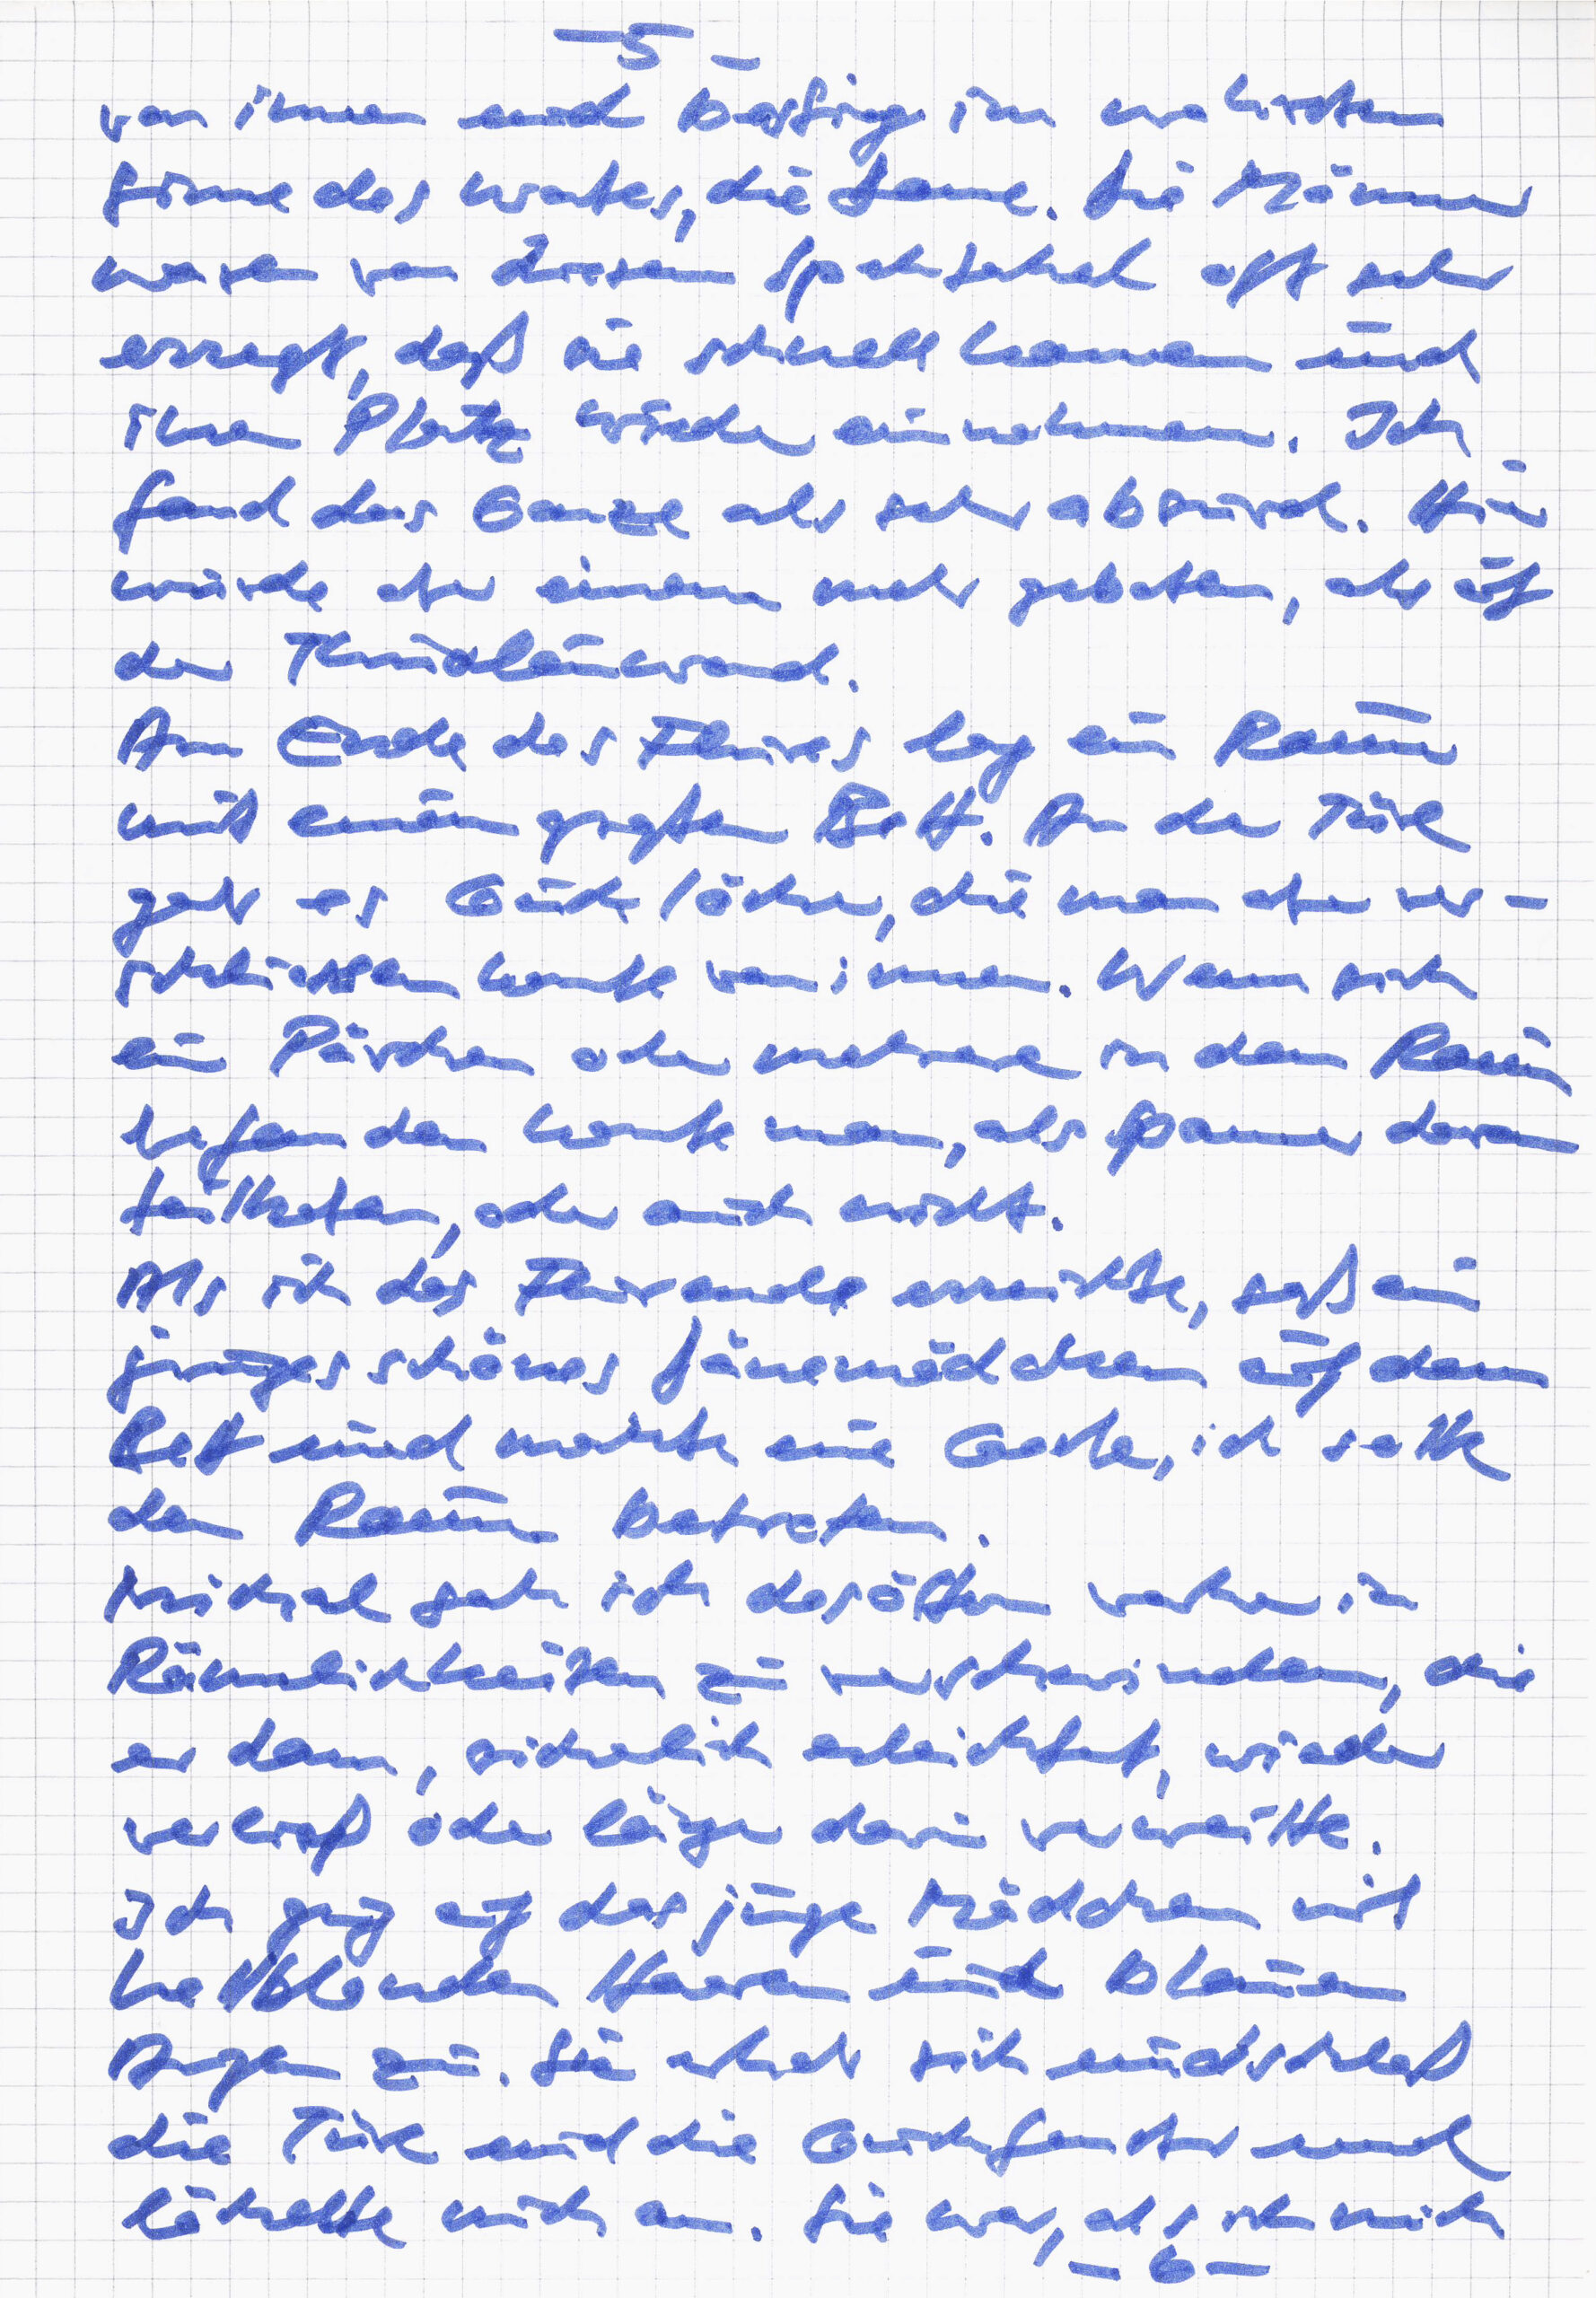 – 5 –
von ihnen und bestieg im wahrsten
Sinne des Wortes, die Dame. Die Männer
waren von diesem Spektakel oft sehr
erregt, daß sie schnell kamen und
ihren Platz wieder einnahmen. Ich
fand das Ganze als sehr absurd. Hier
wurde aber einem mehr geboten, als auf
der Kinoleinwand.
Am Ende des Flures lag ein Raum
mit einem großen Bett. An der Türe
gab es Gucklöcher, die man aber ver-
schliessen konnte von innen. Wenn sich
ein Pärchen oder mehrere in dem Raum
befanden konnte man, als Spanner daran
teilhaben, oder auch nicht.
Als ich das Flurende erreichte, saß ein
junges schönes Mädchen auf dem
Bett und machte eine Geste, ich solle
den Raum betreten.
Michael sah ich des öfteren vorher in
Räumlichkeiten zu verschwinden, die
er dann, sicherlich erleichtert, wieder
verließ oder länger darin verweilte.
Ich ging auf das junge Mädchen mit
hellblonden Haaren und blauen
Augen zu. Sie erhob sich und schloß
die Türe und die Guckfenster und
lächelte mich an. Sie war, als ich mich
– 6 –